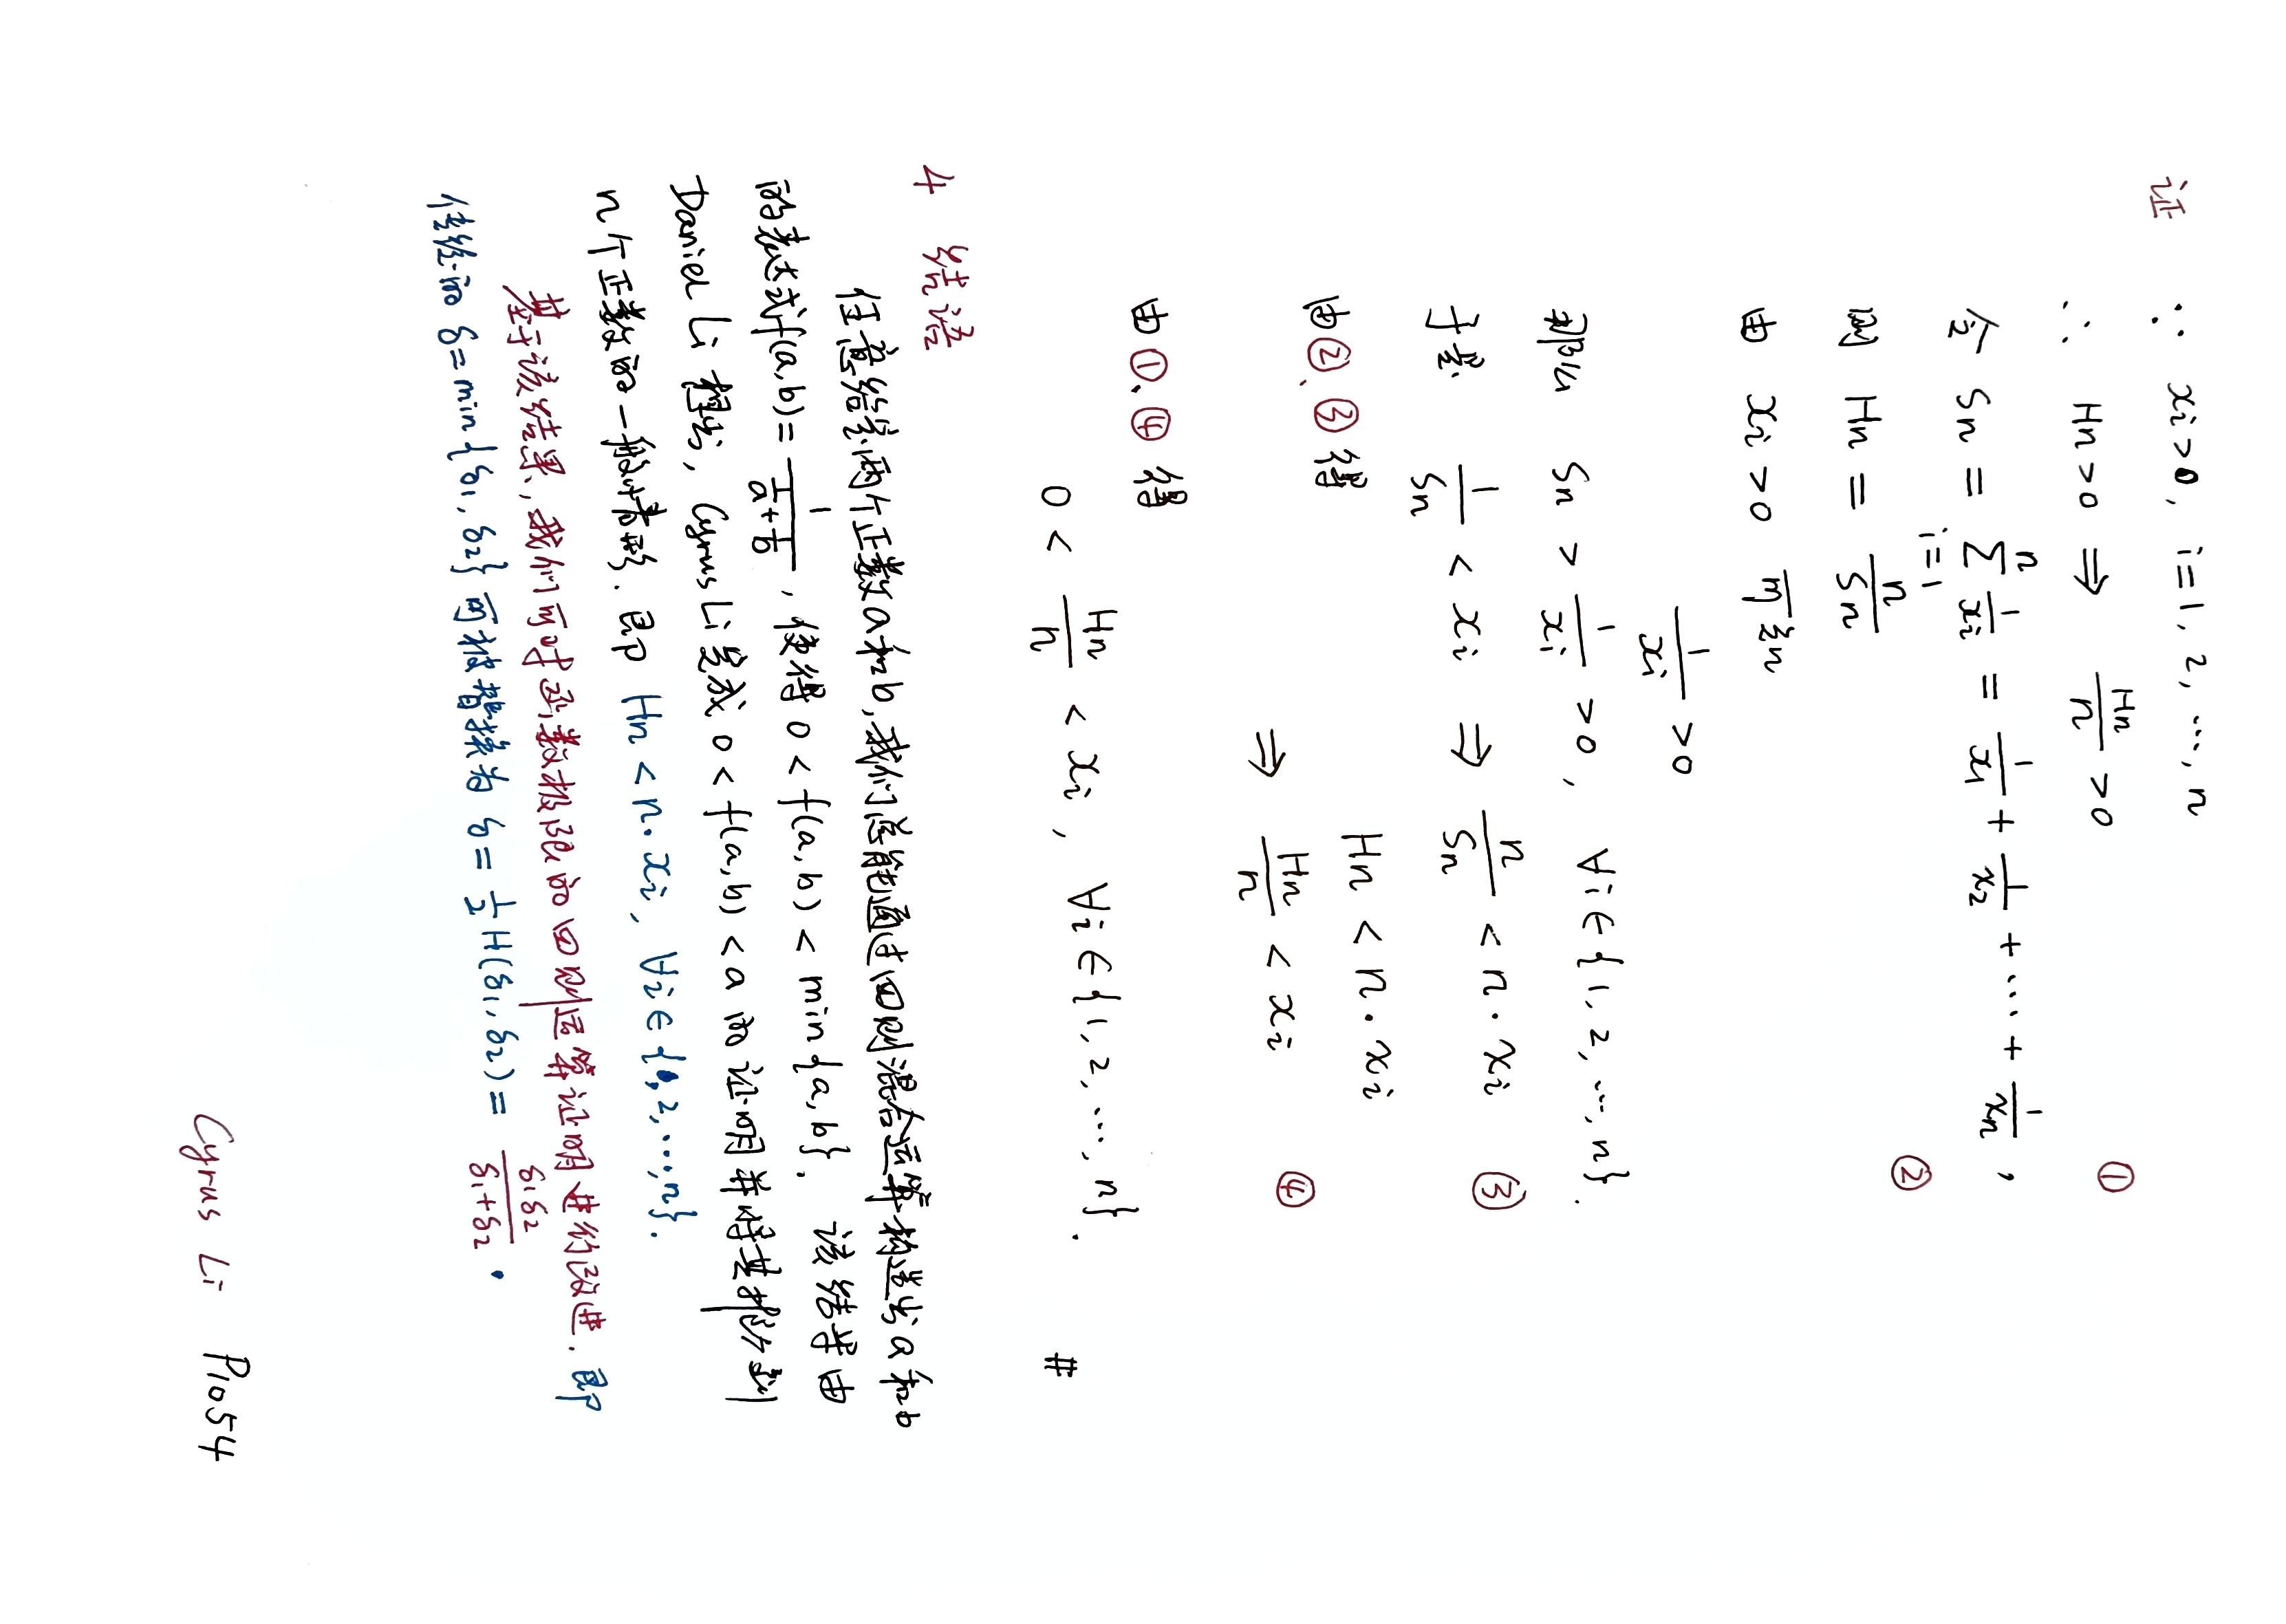 证 ∵ xi>0, i=1, 2, ..., n
∴ Hn>0 ⇒ Hn/n >0 ①
令 Sn = Σ(i=1→n) 1/xi = 1/x1 + 1/x2 + ... + 1/xn ,
则 Hn = n/Sn ②
由 xi>0 可知
1/xi >0
那么 Sn > 1/xi >0 , ∀i∈{1, 2, ..., n}.
于是 1/Sn < xi ⇒ n/Sn < n·xi ③
由②、③得 Hn < n·xi
⇒ Hn/n < xi ④
由①、④得
0 < Hn/n < xi , ∀i∈{1, 2, ..., n}. #
4 结语
任意给定两个正数a和b,我们总能通过四则混合运算构造出a和b
的表达式f(a,b)= 1/(1/a+1/b) , 使得0<f(a,b)<min{a,b}. 该结果由
Daniel Li 提出, Cyrus Li完成0<f(a,b)<a的证明并将其推介到
n个正数的一般情形. 即 Hn<n·xi, ∀i∈{1,2,...,n}.
基于该结果,我们可对函数极限的四则运算证明进行改进. 即
传统的δ=min{δ1,δ2}可被替换为δ=1/2 H(δ1,δ2)= δ1δ2/(δ1+δ2) .
Cyrus Li P1054